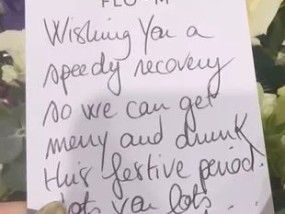 Wishing You a
speedy recovery
so we can get
merry and drunk
this festive period.
you lots